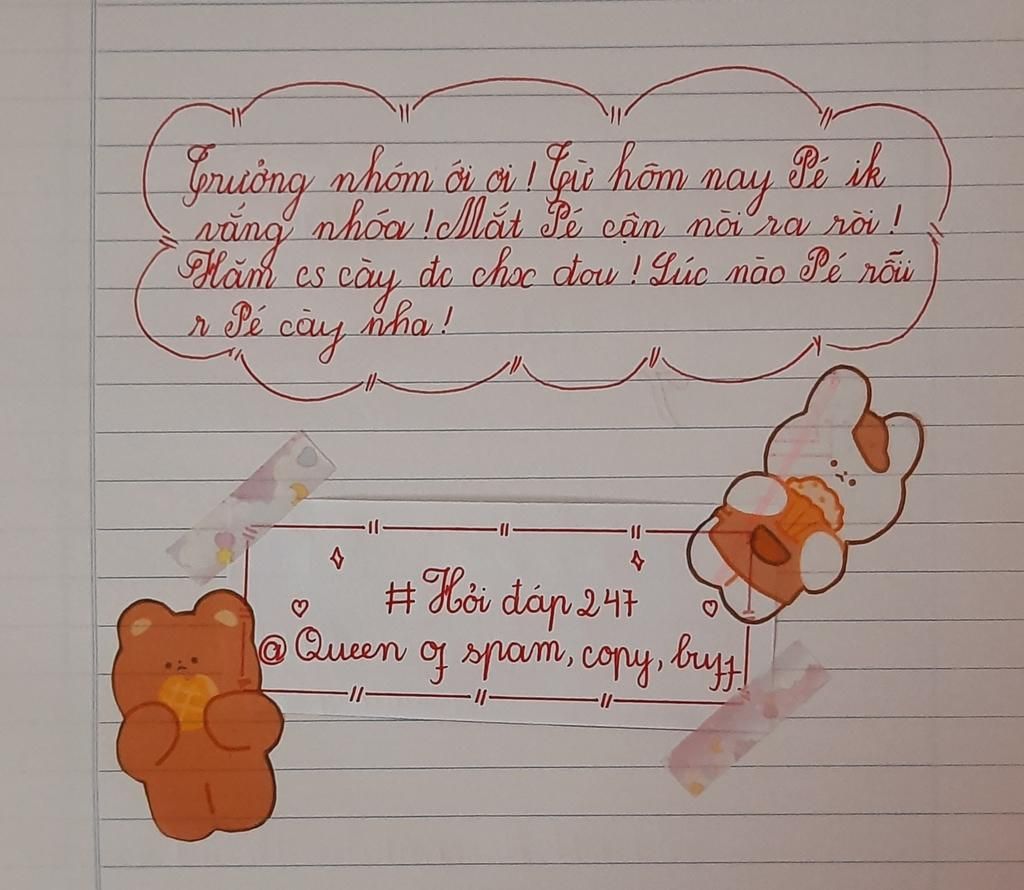 Trưởng nhóm ới ơi ! Từ hôm nay Pé ik
vắng nhóa ! Mắt Pé cận nòi ra ròi !
Hăm cs cày đc choc đou ! Lúc nào Pé rỗii
r Pé cày nha !
# Hỏi đáp 247
@ Queen of spam, copy, buff